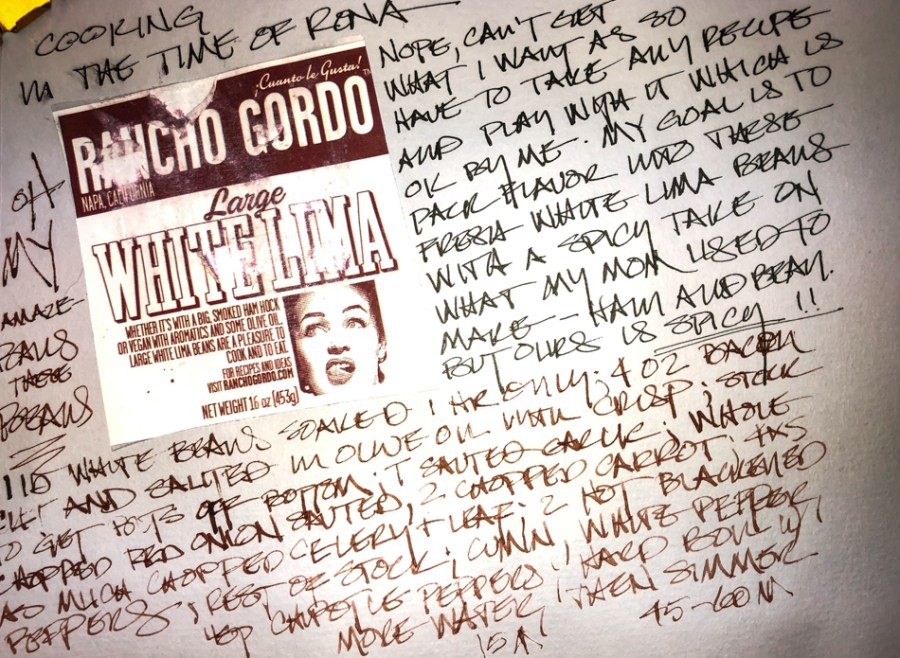 COOKING
IN THE TIME OF RONA
NOPE, CAN'T GET
WHAT I WANT AS SO
HAVE TO TAKE ANY RECIPE
AND PLAY WITH IT WHICH IS
OK BY ME. MY GOAL IS TO
PACK FLAVOR INTO THESE
FRESH WHITE LIMA BEANS
WITH A SPICY TAKE ON
WHAT MY MOM USED TO
MAKE - HAM AND BEAN.
BUT OURS IS SPICY!!
¡Cuanto le Gusta!
RANCHO GORDO
NAPA, CALIFORNIA
Large
WHITE LIMA
WHETHER IT'S WITH A BIG, SMOKED HAM HOCK
OR VEGAN WITH AROMATICS AND SOME OLIVE OIL,
LARGE WHITE LIMA BEANS ARE A PLEASURE TO
COOK AND TO EAT.
FOR RECIPES AND IDEAS
VISIT RANCHOGORDO.COM
NET WEIGHT 16 oz (453g)
OH
MY
AMAZE-
BEANS
THESE
BEANS
1 LB WHITE BEANS SOAKED 1 HR ONLY; 4 OZ BACON
CUT AND SAUTED IN OLIVE OIL UNTIL CRISP; STOCK
TO GET BITS OFF BOTTOM; T SAUTED GARLIC; WHOLE
CHOPPED RED ONION SAUTED, 2 CHOPPED CARROT; 1/2 AS
AS MUCH CHOPPED CELERY + LEAF. 2 HOT BLACKENED
PEPPERS; REST OF STOCK; CUMIN, WHITE PEPPER,
CHIPOTLE PEPPERS; HARD BOIL W/
MORE WATER, THEN SIMMER
15 M 45-60 M